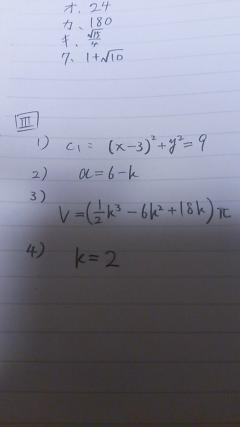 オ. 24
カ. 180
キ. √15/4
ク. 1+√10
III
1) C1 = (x-3)²+y²=9
2) a=6-k
3)
V=(1/2k³-6k²+18k)π
4) k=2